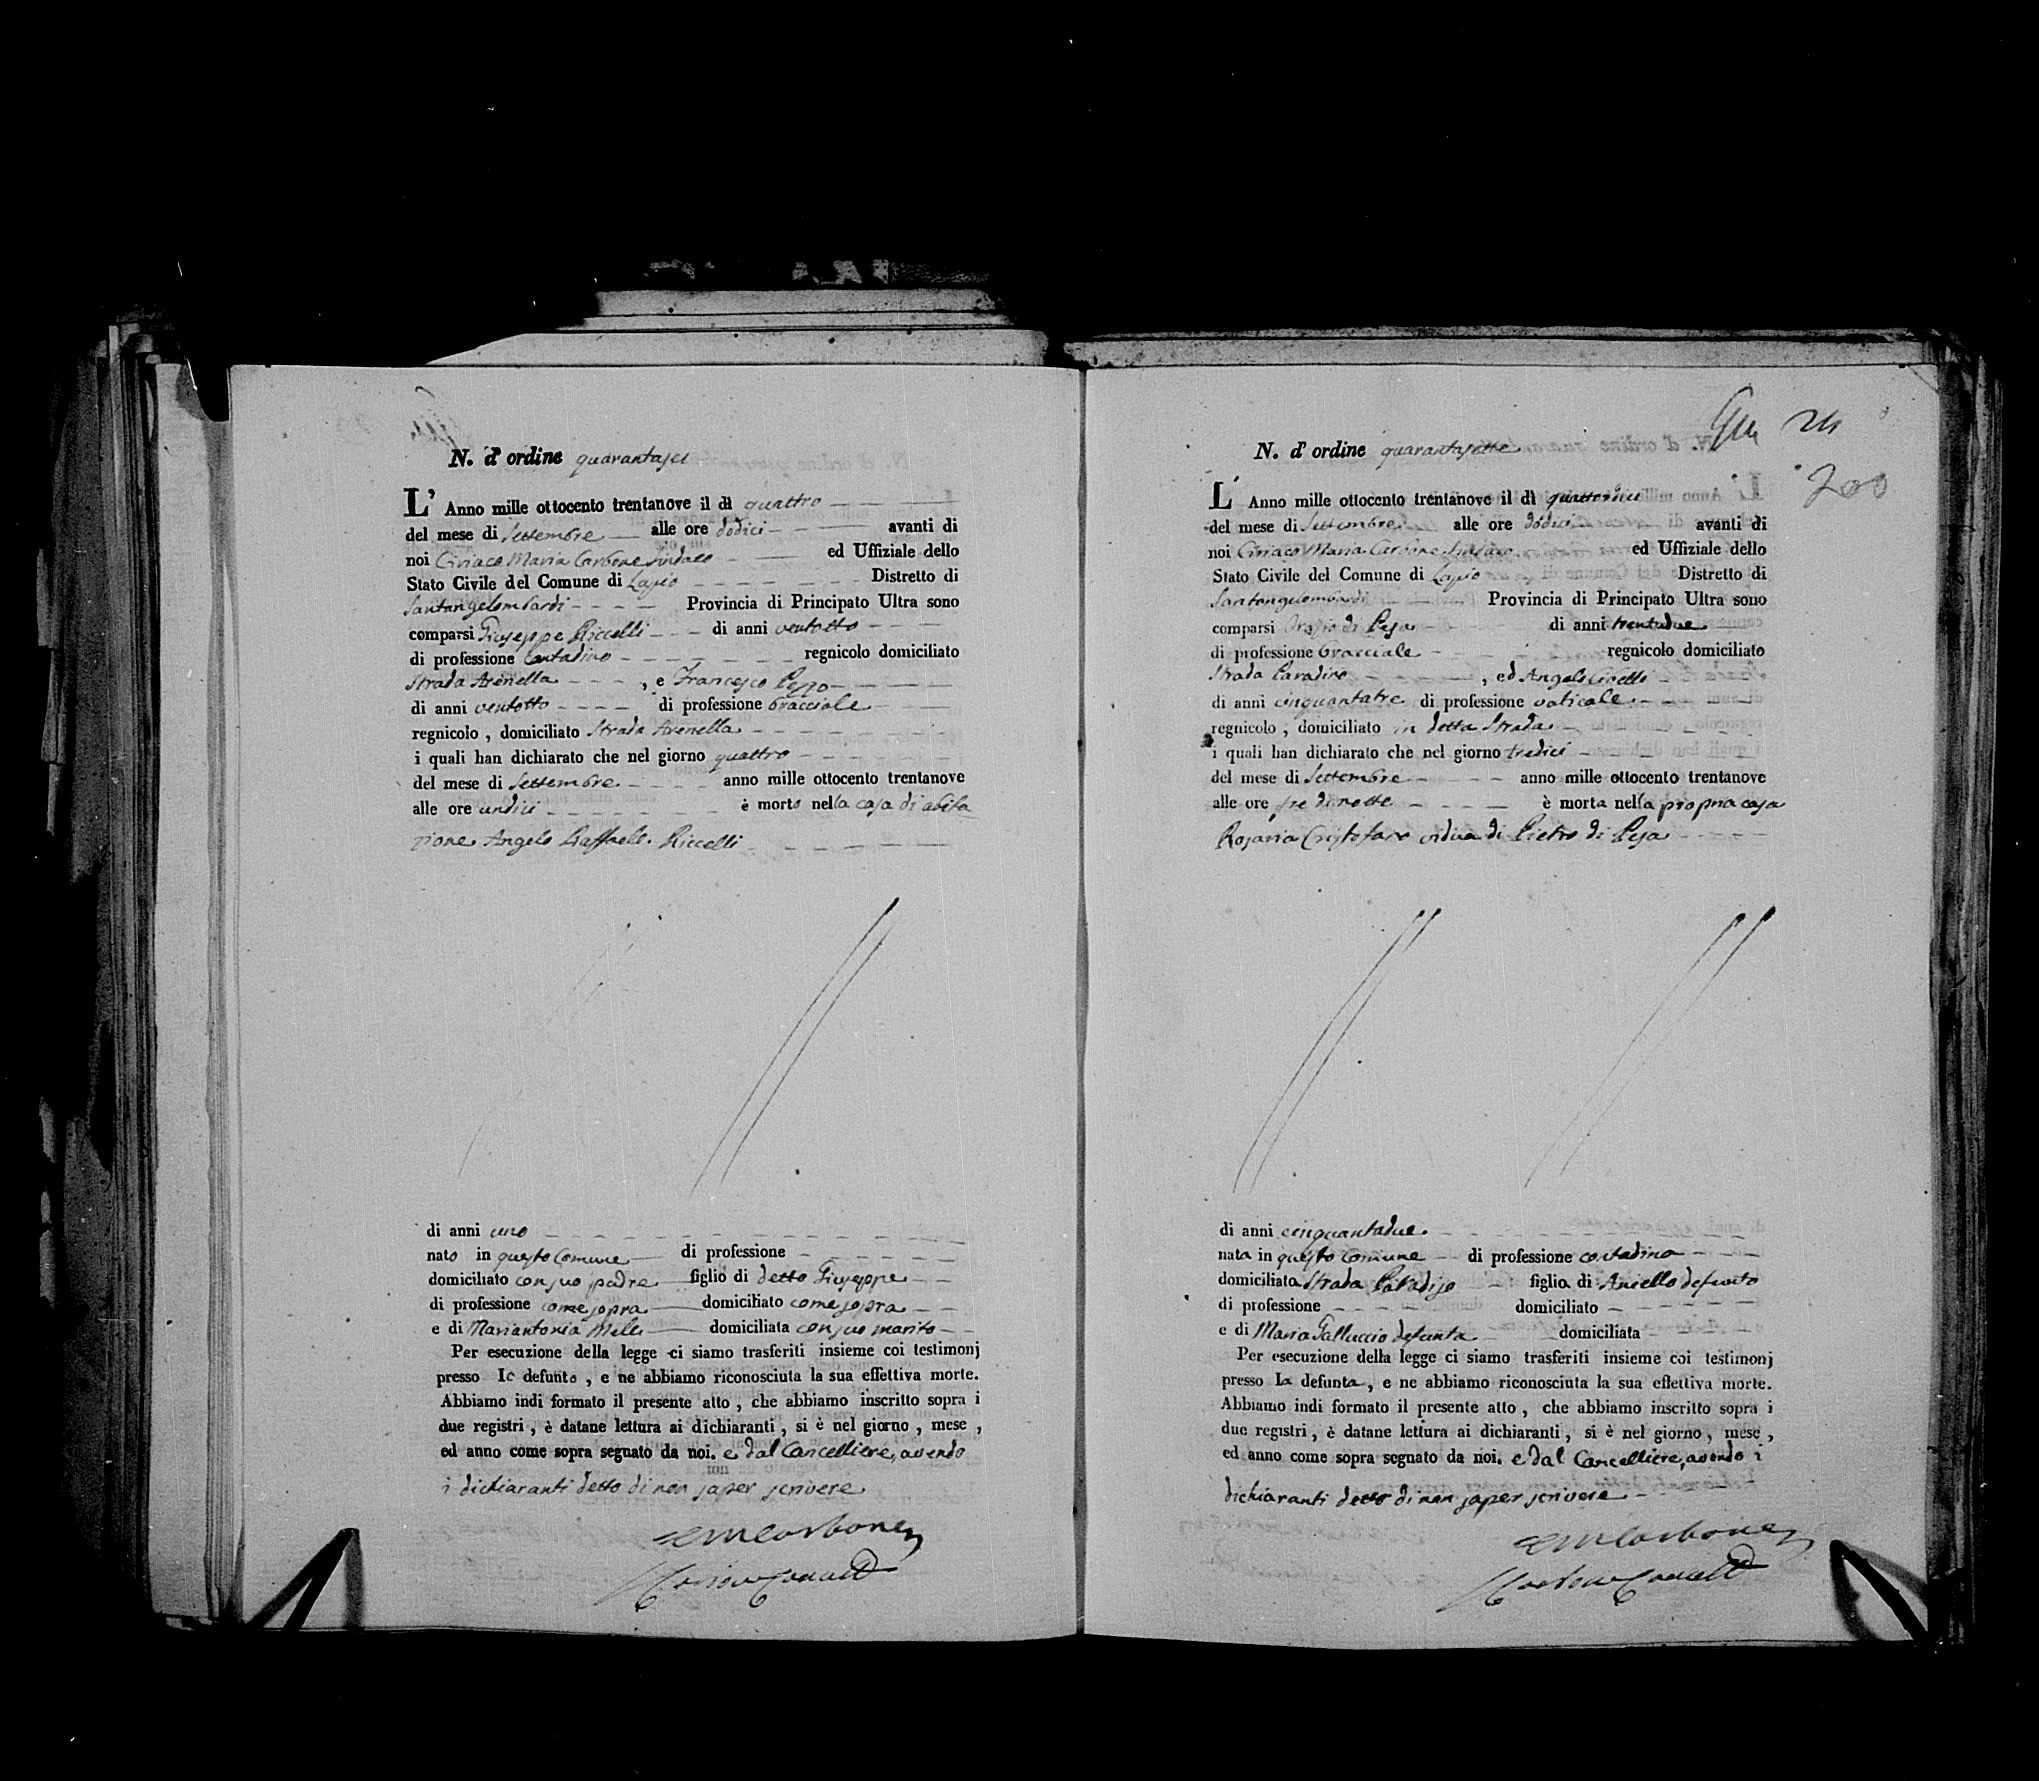 N. d' ordine quarantasei
L' Anno mille ottocento trentanove il dì quattro
del mese di Settembre alle ore dodici avanti di
noi Ciriaco Maria Carbone Sindaco ed Uffiziale dello
Stato Civile del Comune di Lapio Distretto di
Santangelombardi Provincia di Principato Ultra sono
comparsi Giuseppe Riccelli di anni ventotto
di professione Contadino regnicolo domiciliato
Strada Arenella , e Francesco Pezzo
di anni ventotto di professione bracciale
regnicolo , domiciliato Strada Arenella
i quali han dichiarato che nel giorno quattro
del mese di Settembre anno mille ottocento trentanove
alle ore undici è morto nella casa di abita
zione Angelo Raffaele Riccelli
di anni uno
nato in questo Comune di professione
domiciliato con suo padre figlio di detto Giuseppe
di professione come sopra domiciliato come sopra
e di Mariantonia domiciliata con suo marito
Per esecuzione della legge ci siamo trasferiti insieme coi testimonj
presso lo defunto , e ne abbiamo riconosciuta la sua effettiva morte.
Abbiamo indi formato il presente atto , che abbiamo inscritto sopra i
due registri , è datane lettura ai dichiaranti , si è nel giorno , mese ,
ed anno come sopra segnato da noi. e dal Cancelliere, avendo
i dichiaranti detto di non saper scrivere
CM Carbone
200
N. d' ordine quarantasette
L' Anno mille ottocento trentanove il dì quattordici
del mese di Settembre alle ore dodici avanti di
noi Ciriaco Maria Carbone Sindaco ed Uffiziale dello
Stato Civile del Comune di Lapio Distretto di
Santangelombardi Provincia di Principato Ultra sono
comparsi Orazio di Pesa di anni trentadue
di professione bracciale regnicolo domiciliato
Strada Paradiso , ed Angelo
di anni cinquantatre di professione vaticale
regnicolo , domiciliato in detta Strada
i quali han dichiarato che nel giorno tredici
del mese di Settembre anno mille ottocento trentanove
alle ore tre di notte è morta nella propria casa
Rosaria Cristofaro vidua di Pietro di Pesa
di anni cinquantadue
nata in questo Comune di professione contadina
domiciliata Strada Paradiso figlia di Aniello defunto
di professione domiciliato
e di Maria Galluccio defunta domiciliata
Per esecuzione della legge ci siamo trasferiti insieme coi testimonj
presso la defunta , e ne abbiamo riconosciuta la sua effettiva morte.
Abbiamo indi formato il presente atto , che abbiamo inscritto sopra i
due registri , è datane lettura ai dichiaranti , si è nel giorno , mese ,
ed anno come sopra segnato da noi. e dal Cancelliere, avendo i
dichiaranti detto di non saper scrivere
CM Carbone